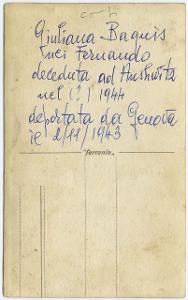 Giuliana Baquis
nei Fernando
deceduta ad Aushwitz
nel (?) 1944
deportata da Genova
il 2/11/1943
"Ferrania"